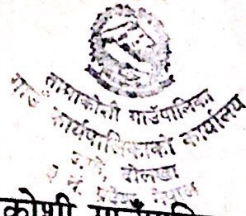 तामाकोशी गाउँपालिका
गाउँ कार्यपालिकाको कार्यालय
दोलखा
कोशी गाउँपालि